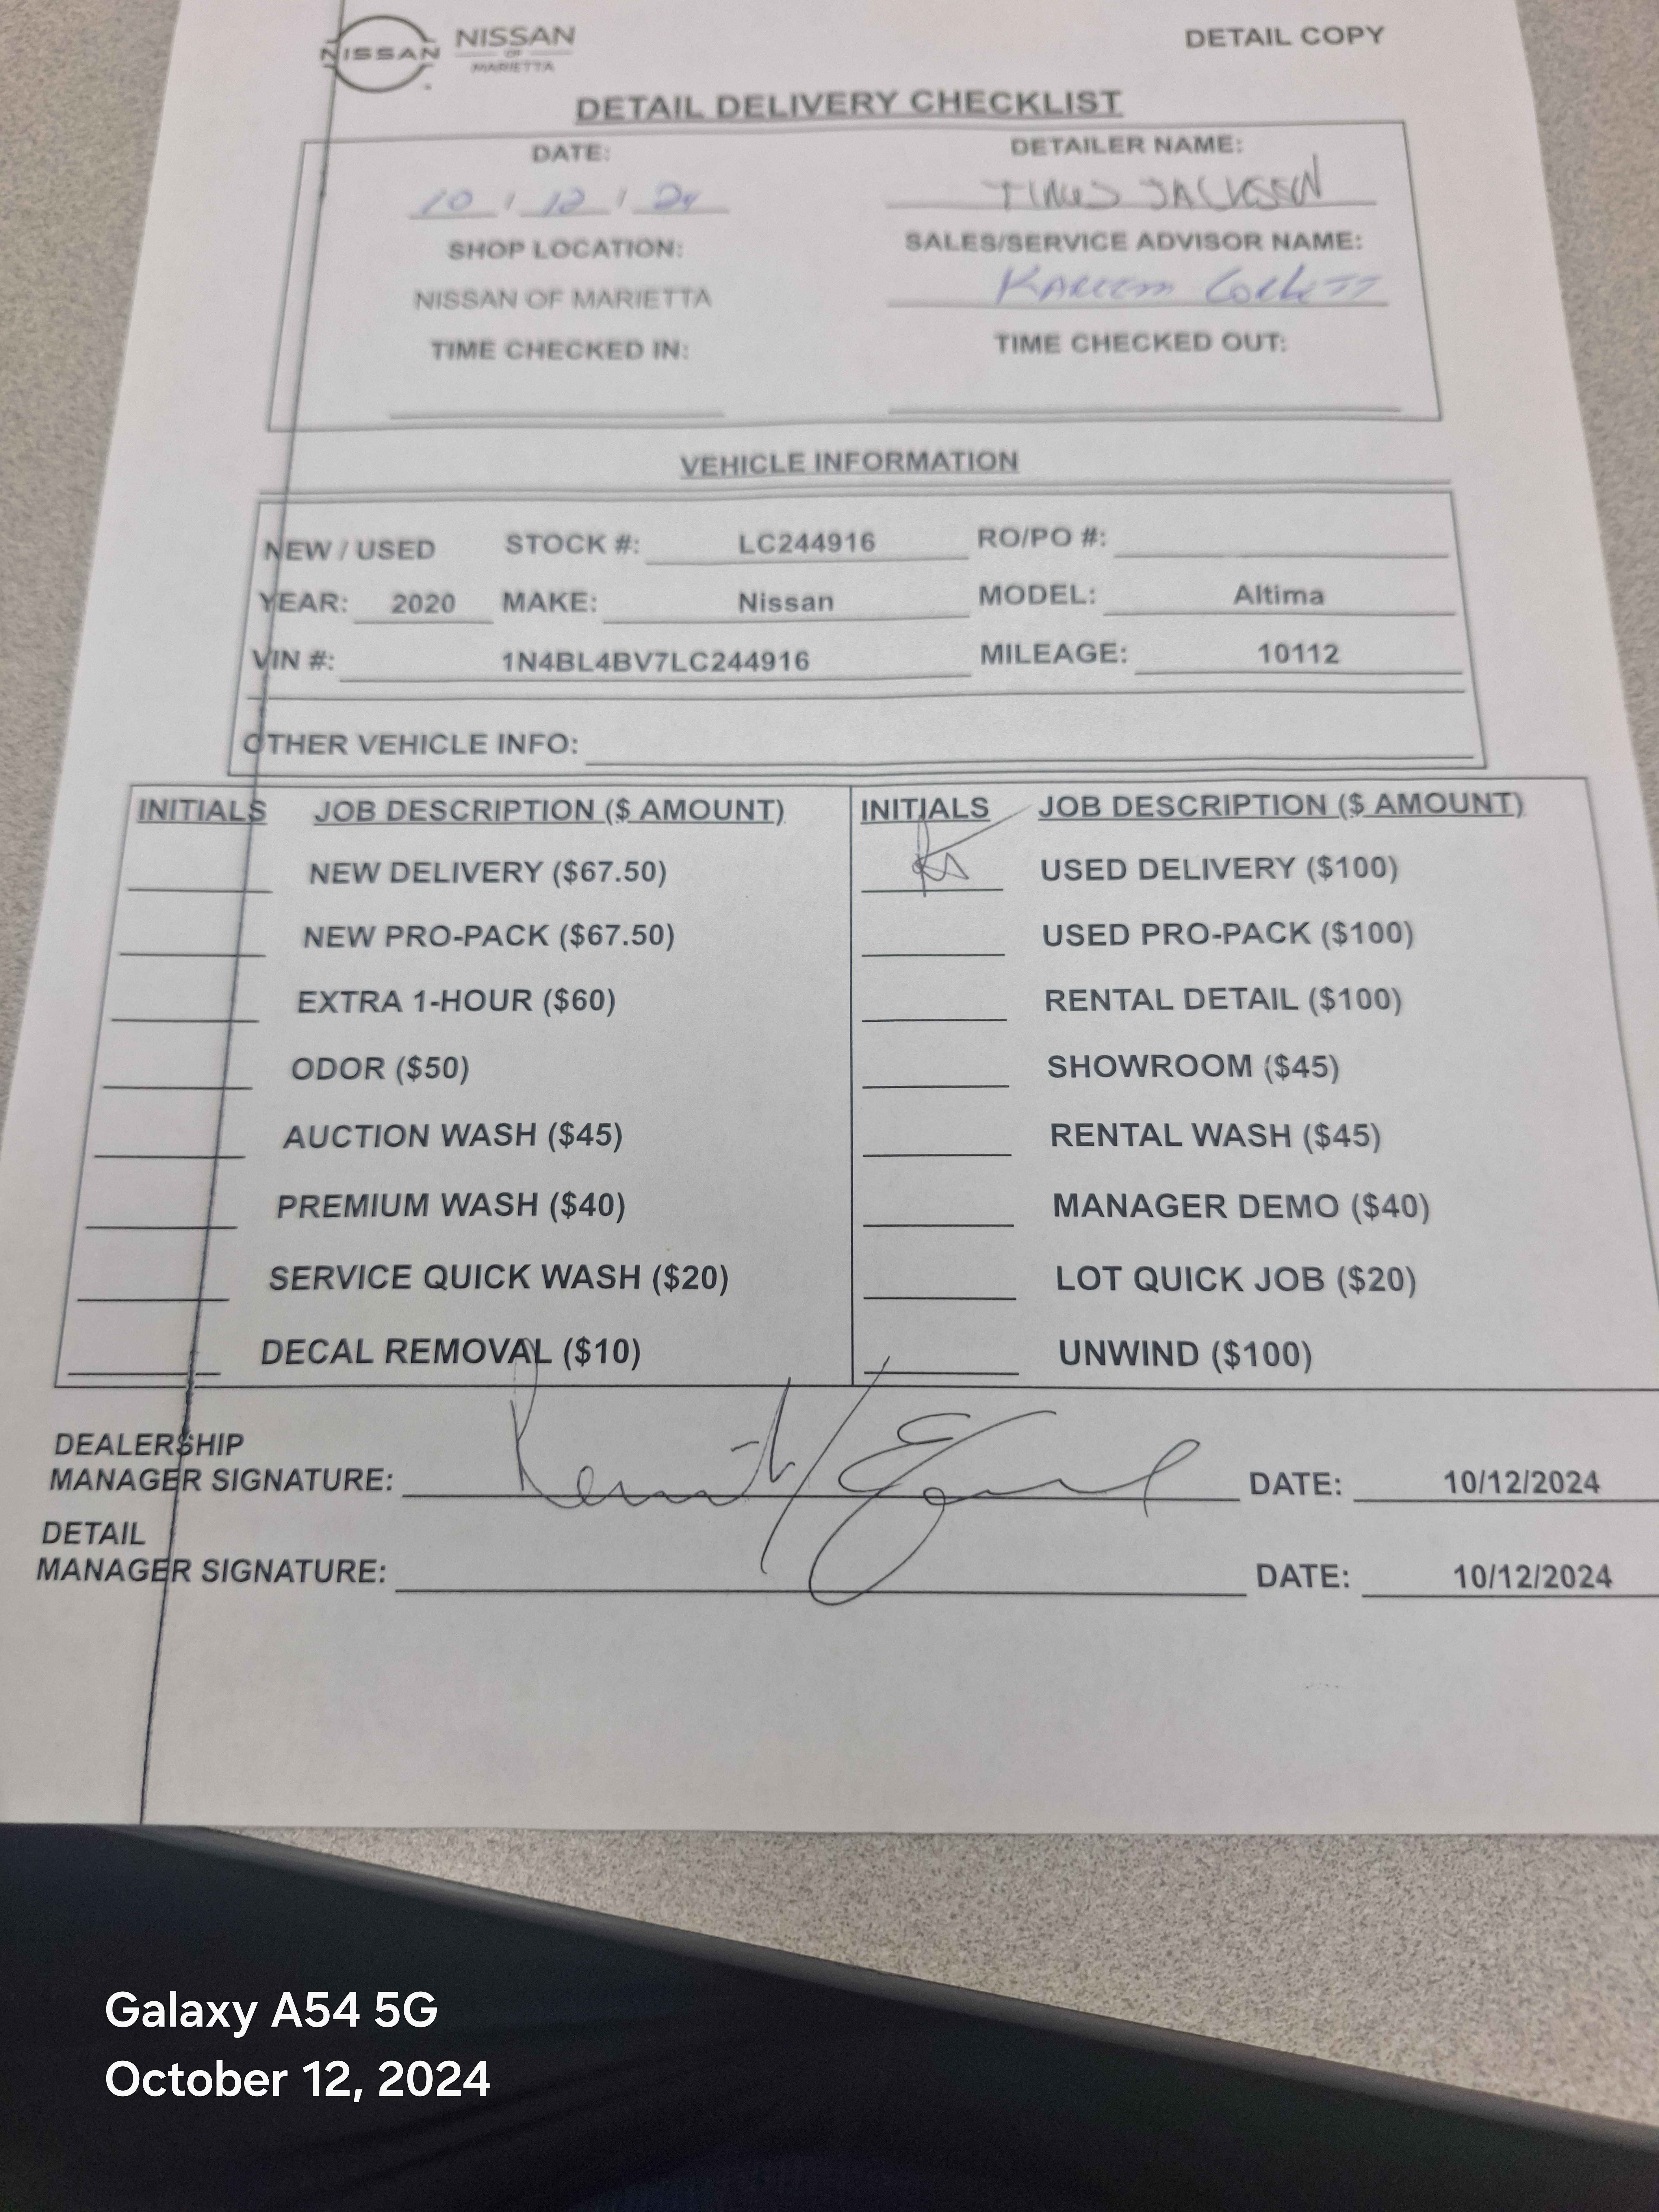 NISSAN NISSAN
OF
MARIETTA
DETAIL COPY
DETAIL DELIVERY CHECKLIST
DATE: DETAILER NAME:
10 / 12 / 24 JACKSON
SHOP LOCATION: SALES/SERVICE ADVISOR NAME:
NISSAN OF MARIETTA Kareem Corbett
TIME CHECKED IN: TIME CHECKED OUT:
VEHICLE INFORMATION
NEW / USED STOCK #: LC244916 RO/PO #:
YEAR: 2020 MAKE: Nissan MODEL: Altima
VIN #: 1N4BL4BV7LC244916 MILEAGE: 10112
OTHER VEHICLE INFO:
INITIALS JOB DESCRIPTION ($ AMOUNT) INITIALS JOB DESCRIPTION ($ AMOUNT)
NEW DELIVERY ($67.50) USED DELIVERY ($100)
NEW PRO-PACK ($67.50) USED PRO-PACK ($100)
EXTRA 1-HOUR ($60) RENTAL DETAIL ($100)
ODOR ($50) SHOWROOM ($45)
AUCTION WASH ($45) RENTAL WASH ($45)
PREMIUM WASH ($40) MANAGER DEMO ($40)
SERVICE QUICK WASH ($20) LOT QUICK JOB ($20)
DECAL REMOVAL ($10) UNWIND ($100)
DEALERSHIP
MANAGER SIGNATURE: DATE: 10/12/2024
DETAIL
MANAGER SIGNATURE: DATE: 10/12/2024
Galaxy A54 5G
October 12, 2024